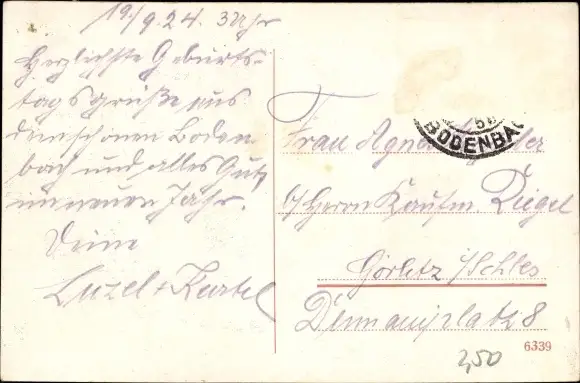 19./9.24. 3 Uhr
Herzlichste Geburts-
tagsgrüße aus
dem schönen Boden
bach und alles Gute
im neuen Jahr.
Deine
Luzel + Kurtel
BODENBAC
Frau Agnes
b/ Herrn Kaufm. Riegel
Görlitz i/Schles
Demianiplatz 8
6339
2,50